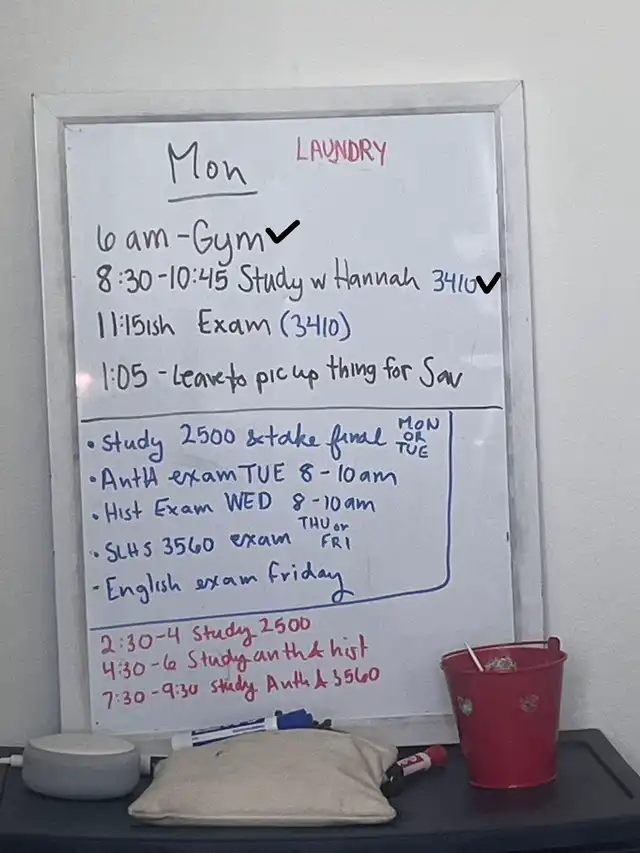 Mon
LAUNDRY
6 am - Gym ✔
8:30-10:45 Study w Hannah 3410 ✔
11:15ish Exam (3410)
1:05 - Leave to pic up thing for Sav
• Study 2500 & take final MON OR TUE
• AntH exam TUE 8-10am
• Hist Exam WED 8-10am
• SLHS 3560 exam THU or FRI
- English exam Friday
2:30-4 Study 2500
4:30-6 Study anth & hist
7:30-9:30 study Anth & 3560